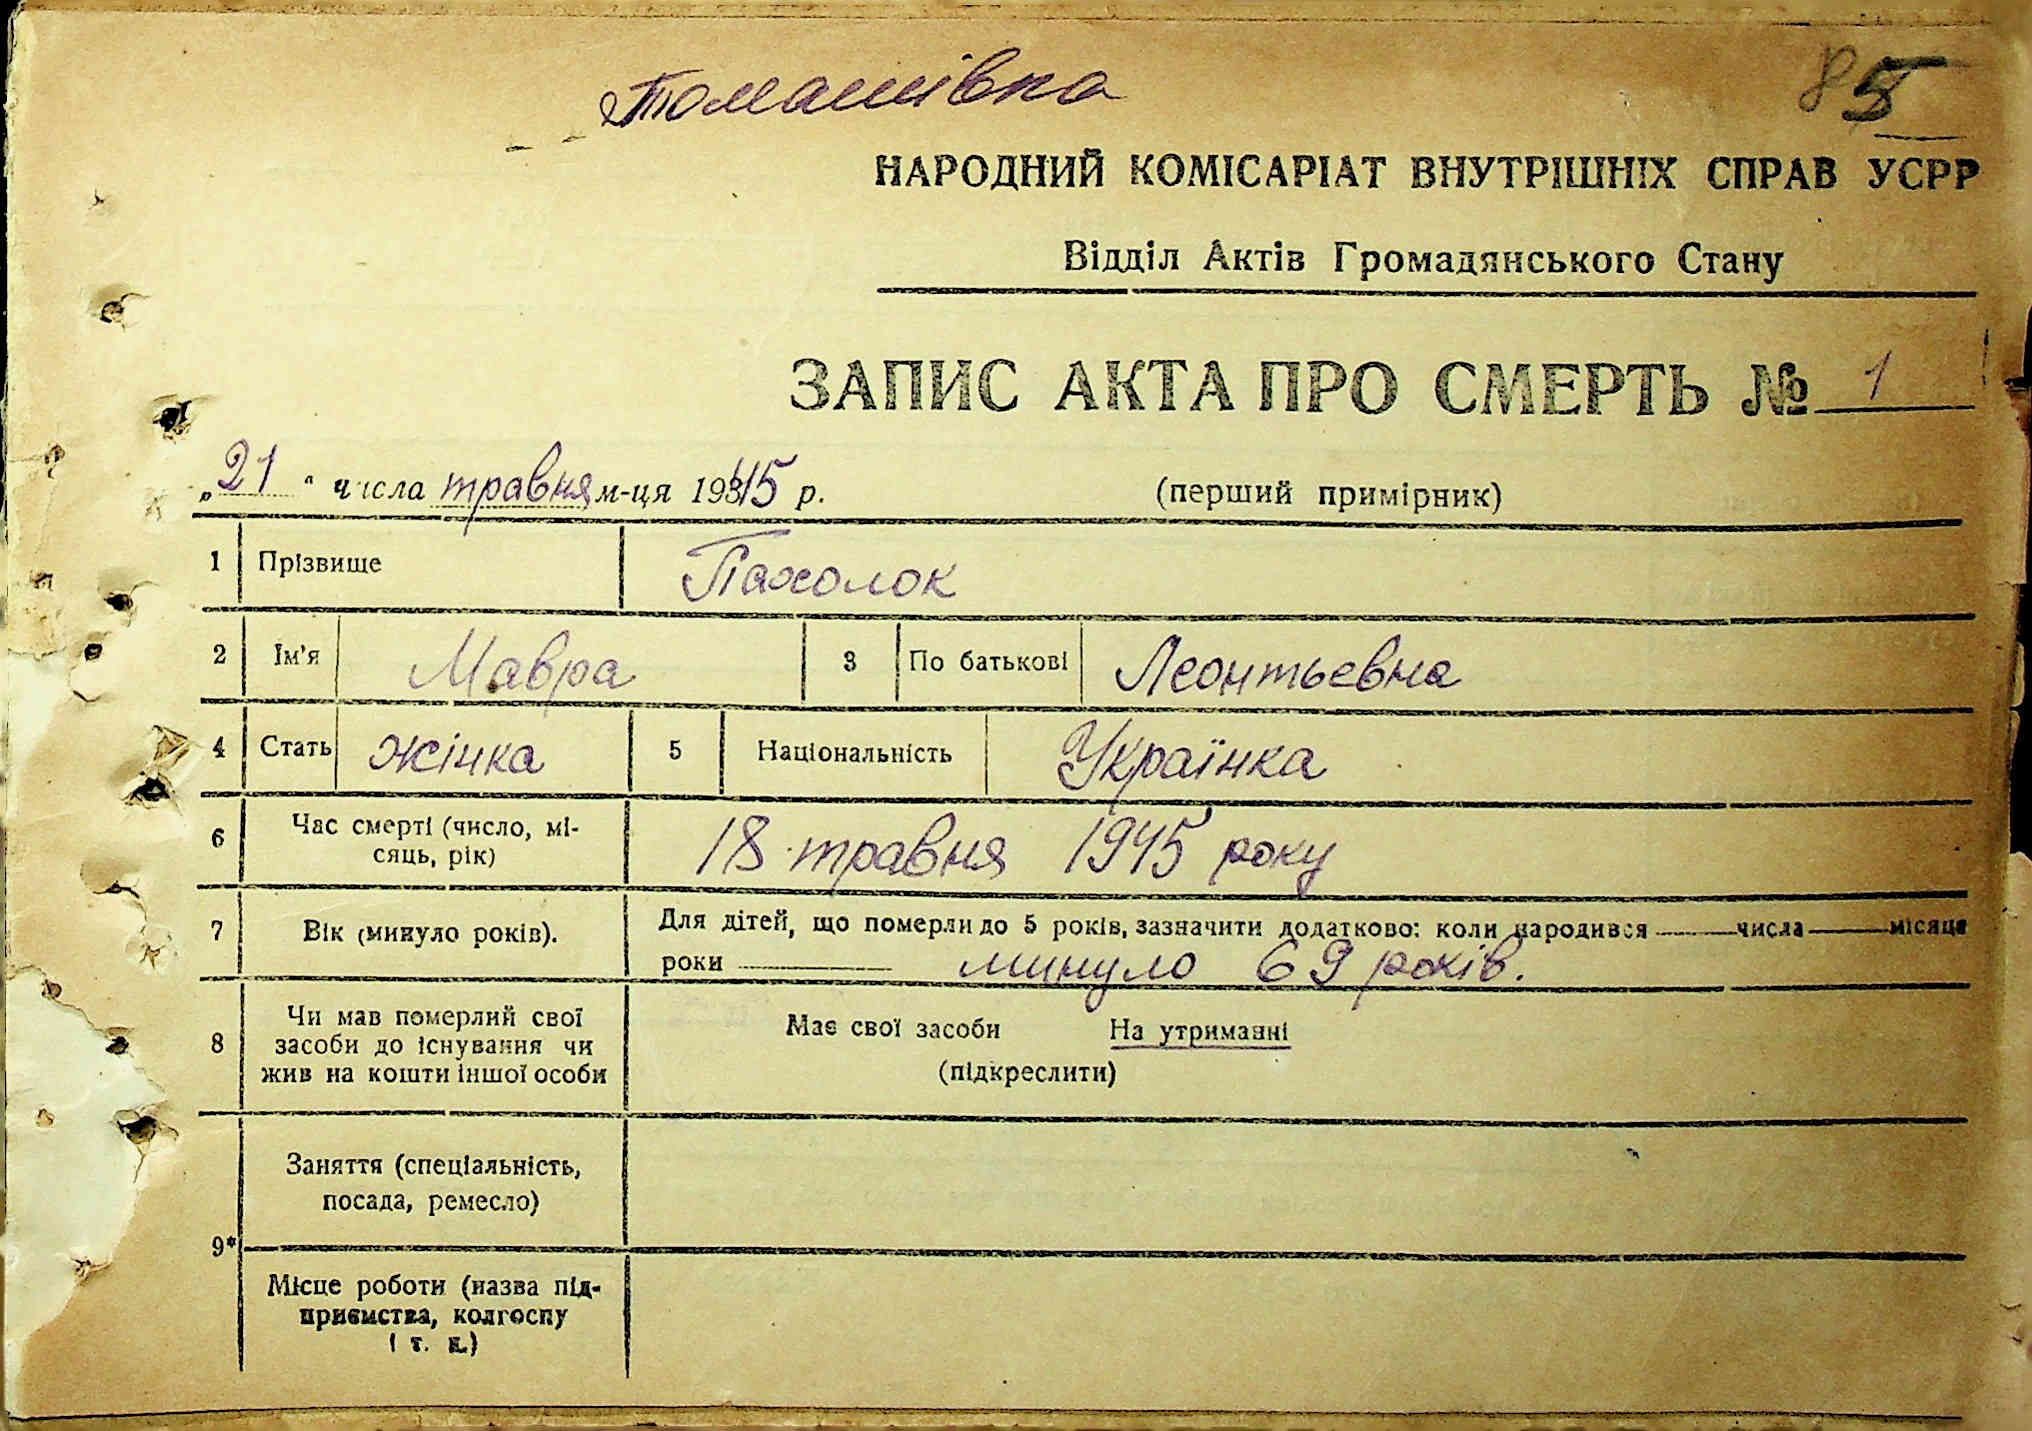 Томашівка
85
НАРОДНИЙ КОМІСАРІАТ ВНУТРІШНІХ СПРАВ УСРР
Відділ Актів Громадянського Стану
ЗАПИС АКТА ПРО СМЕРТЬ № 1
„21“ числа травня м-ця 1945 р. (перший примірник)
1 Прізвище Пахолок
2 Ім'я Мавра 3 По батькові Леонтьевна
4 Стать жінка 5 Національність Українка
6 Час смерті (число, мі-
сяць, рік) 18 травня 1945 року
7 Вік (минуло років). Для дітей, що померли до 5 років, зазначити додатково: коли народився ——— числа ——— місяця
роки ——— минуло 69 років.
8 Чи мав померлий свої
засоби до існування чи
жив на кошти іншої особи
Має свої засоби На утриманні
(підкреслити)
9* Заняття (спеціальність,
посада, ремесло)
Місце роботи (назва під-
приємства, колгоспу
і т. п.)